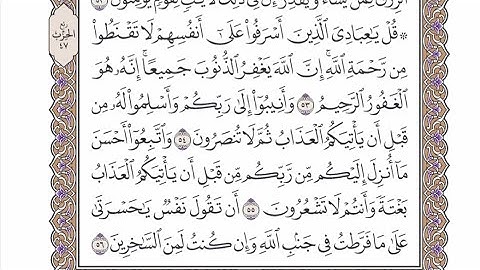 الرِّزْقَ لِمَن يَشَآءُ وَيَقْدِرُ إِنَّ فِي ذَٰلِكَ لَءَايَٰتٍ لِّقَوْمٍ يُؤْمِنُونَ ٥٢
۞ قُلْ يَٰعِبَادِيَ ٱلَّذِينَ أَسْرَفُوا۟ عَلَىٰٓ أَنفُسِهِمْ لَا تَقْنَطُوا۟
مِن رَّحْمَةِ ٱللَّهِ إِنَّ ٱللَّهَ يَغْفِرُ ٱلذُّنُوبَ جَمِيعًا إِنَّهُۥ هُوَ
ٱلْغَفُورُ ٱلرَّحِيمُ ٥٣ وَأَنِيبُوٓا۟ إِلَىٰ رَبِّكُمْ وَأَسْلِمُوا۟ لَهُۥ مِن
قَبْلِ أَن يَأْتِيَكُمُ ٱلْعَذَابُ ثُمَّ لَا تُنصَرُونَ ٥٤ وَٱتَّبِعُوٓا۟ أَحْسَنَ
مَآ أُنزِلَ إِلَيْكُم مِّن رَّبِّكُم مِّن قَبْلِ أَن يَأْتِيَكُمُ ٱلْعَذَابُ
بَغْتَةً وَأَنتُمْ لَا تَشْعُرُونَ ٥٥ أَن تَقُولَ نَفْسٌ يَٰحَسْرَتَىٰ
عَلَىٰ مَا فَرَّطتُ فِي جَنۢبِ ٱللَّهِ وَإِن كُنتُ لَمِنَ ٱلسَّٰخِرِينَ ٥٦
ربع
الحزب
٤٧